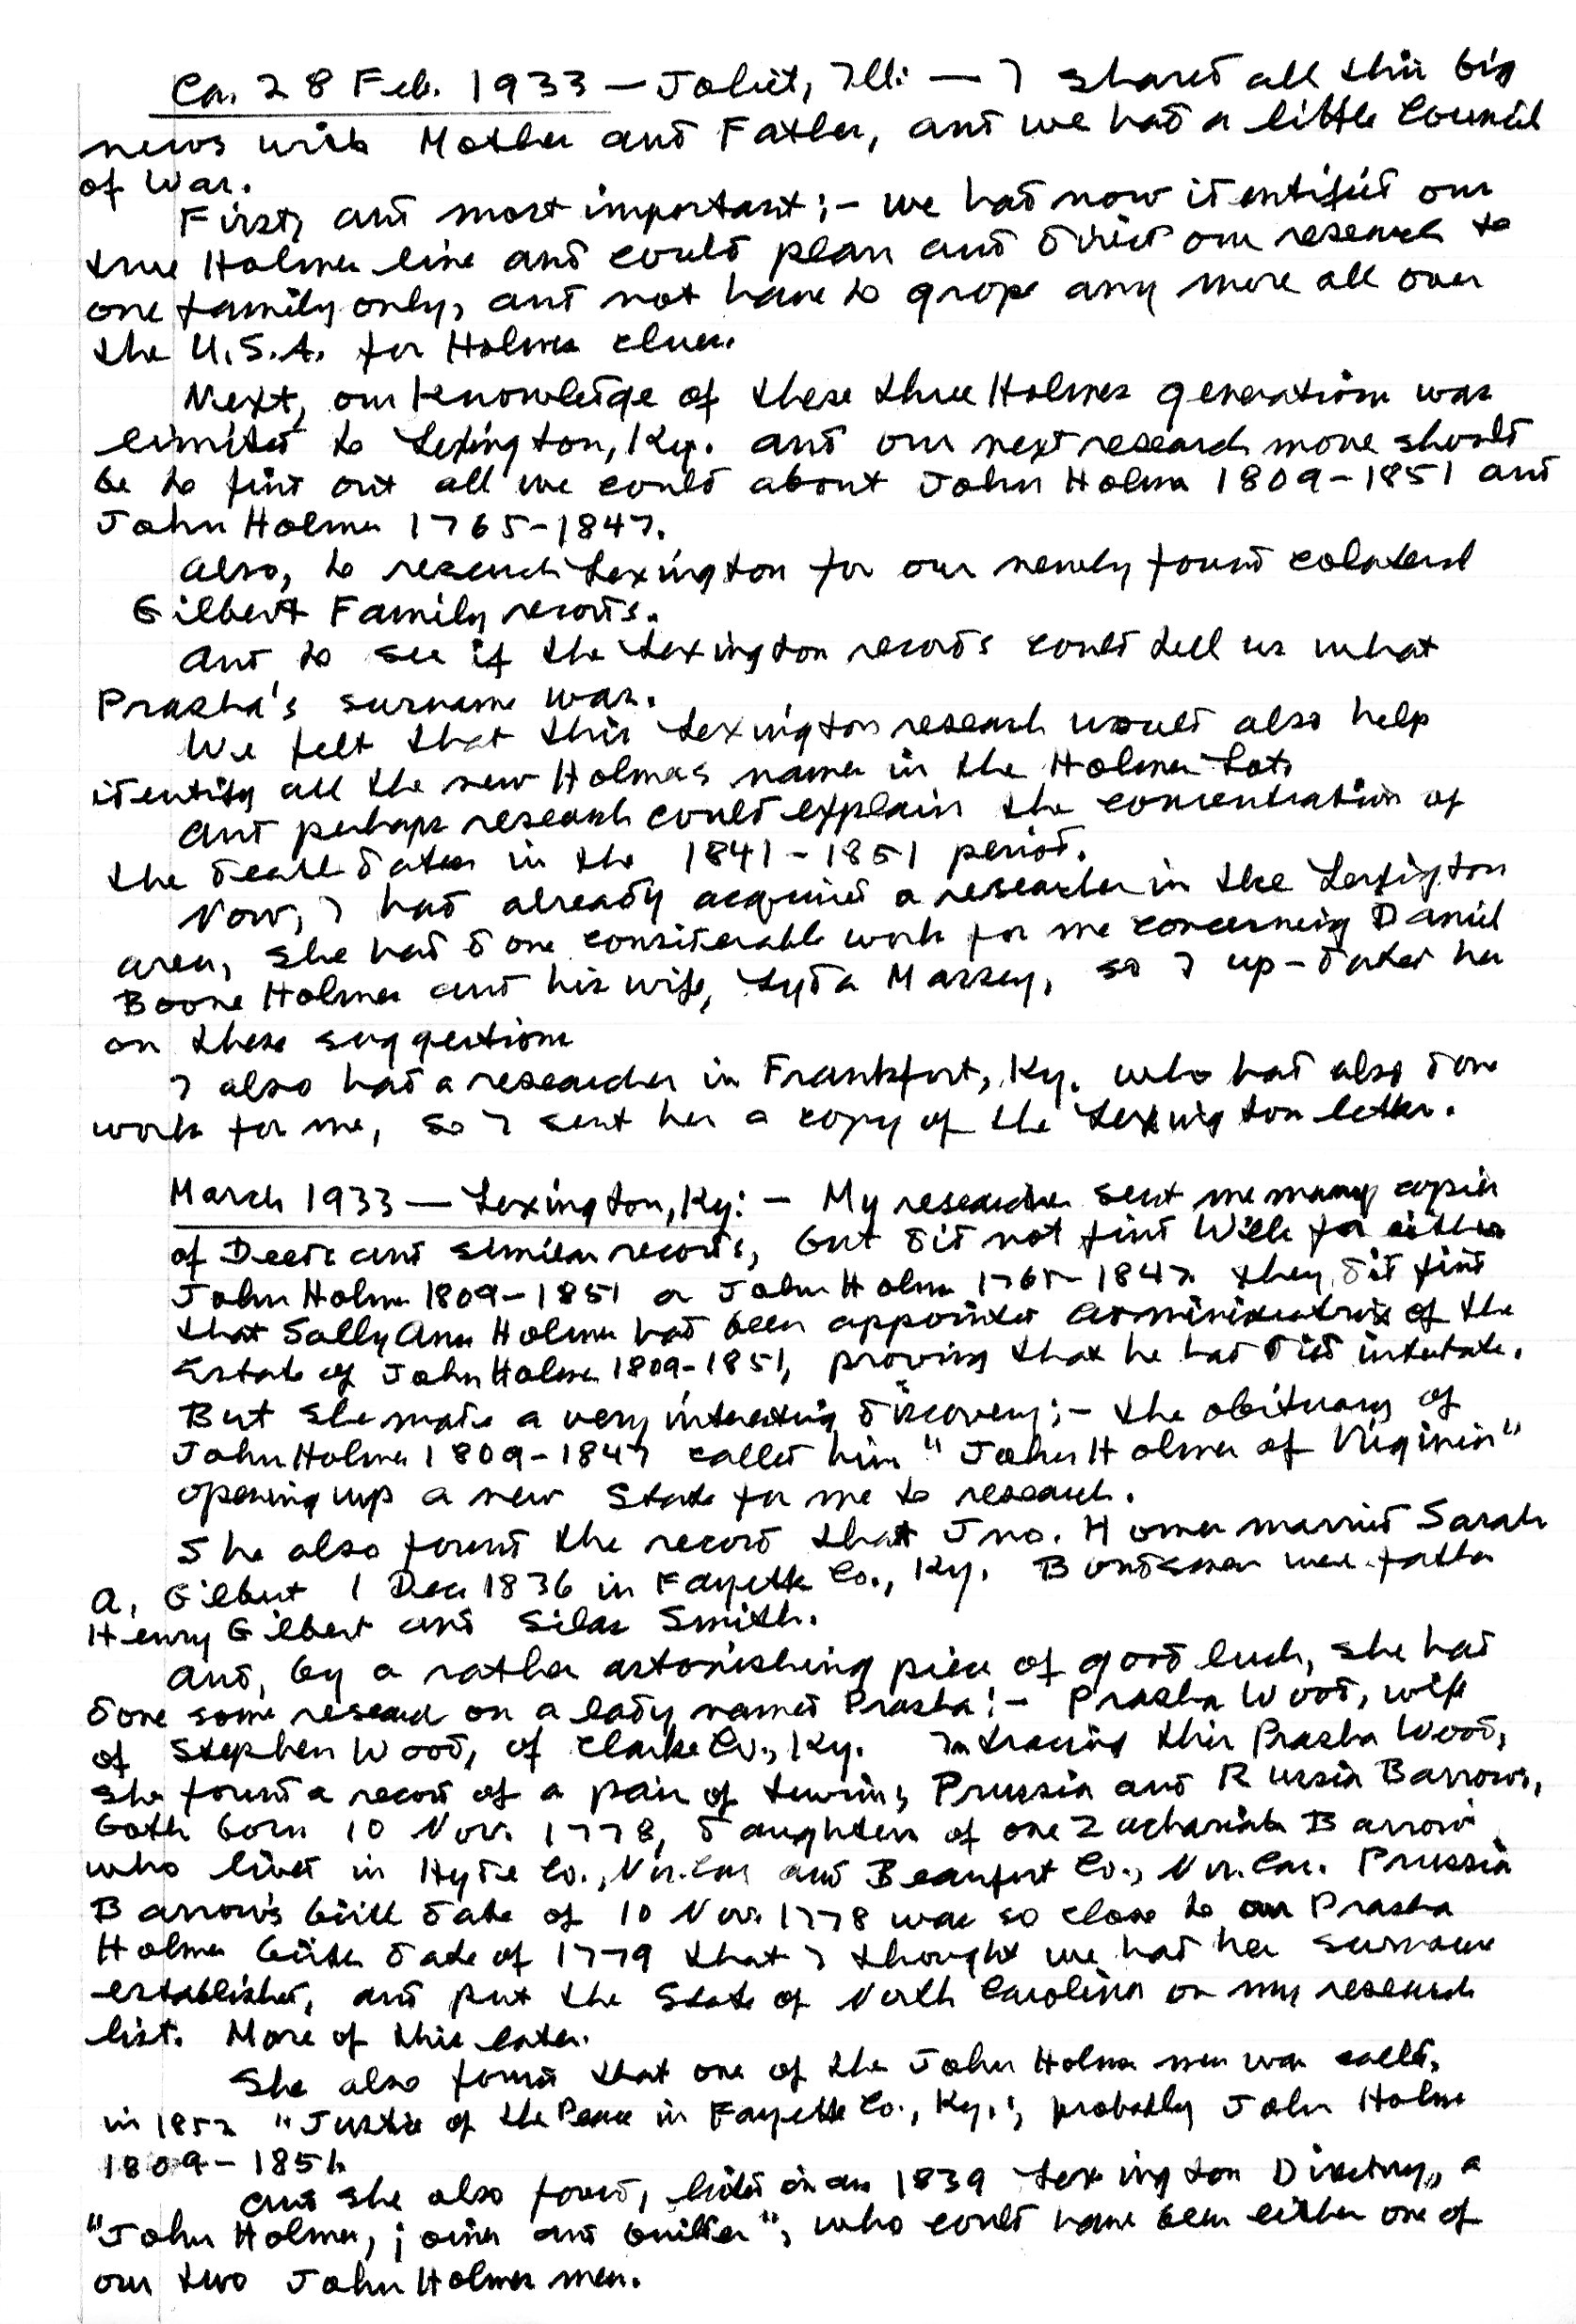 Ca. 28 Feb. 1933 — Joliet, Ill: — I shared all this big
news with Mother and Father, and we had a little Council
of War.
First, and most important; - we had now identified our
true Holmes line and could plan and direct our research to
one family only, and not have to grope any more all over
the U.S.A. for Holmes clues.
Next, our knowledge of these three Holmes generations was
limited to Lexington, Ky. and our next research move should
be to find out all we could about John Holmes 1809-1851 and
John Holmes 1765-1847.
Also, to research Lexington for our newly found colateral
Gilbert Family records.
And to see if the Lexington records could tell us what
Prasha's surname was.
We felt that this Lexington research would also help
identify all the new Holmes names in the Holmes Lots
And perhaps research could explain the concentration of
the death dates in the 1841-1851 period.
Now, I had already acquired a researcher in the Lexington
area, she had done considerable work for me concerning Daniel
Boone Holmes and his wife, Lyda Massey, so I up-dated her
on these suggestions
I also had a researcher in Frankfort, Ky. who had also done
work for me, so I sent her a copy of the Lexington letter.
March 1933 — Lexington, Ky: - My researcher sent me many copies
of Deeds and similar records, but did not find Wills for either
John Holmes 1809-1851 or John Holmes 1765-1847. They did find
that Sally Ann Holmes had been appointed Administratrix of the
Estate of John Holmes 1809-1851, proving that he had died intestate.
But she made a very interesting discovery; - the obituary of
John Holmes 1809-1847 called him "John Holmes of Virginia"
opening up a new State for me to research.
She also found the record that Jno. Homes married Sarah
A. Gilbert 1 Dec 1836 in Fayette Co., Ky. Bondsmen were father
Henry Gilbert and Silas Smith.
And, by a rather astonishing piece of good luck, she had
done some research on a lady named Prasha: - Prasha Wood, wife
of Stephen Wood, of Clarke Co., Ky. In tracing this Prasha Wood,
she found a record of a pair of twins, Prussia and Russia Barrows,
both born 10 Nov. 1778, daughters of one Zachariah Barrow
who lived in Hyde Co., No. Car and Beaufort Co., No. Car. Prussia
Barrow's birth date of 10 Nov. 1778 was so close to our Prasha
Holmes birth date of 1779 that I thought we had her surname
established, and put the State of North Carolina on my research
list. More of this later.
She also found that one of the John Holmes men was called,
in 1852 "Justice of the Peace in Fayette Co., Ky.", probably John Holmes
1809-1851.
And she also found, listed in an 1839 Lexington Directory, a
"John Holmes, joiner and builder", who could have been either one of
our two John Holmes men.